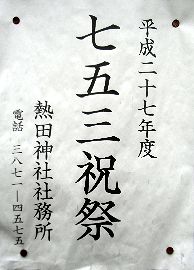 平成二十七年度
七五三祝祭
熱田神社社務所
電話 三八七一―四五七五